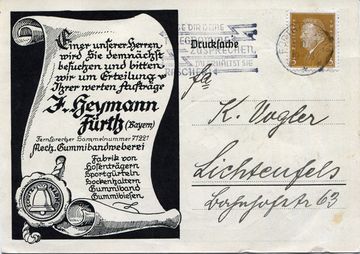 Einer unserer Herren
wird Sie demnächst
besuchen und bitten
wir um Erteilung
Ihrer werten Aufträge
J. Heymann
Fürth (Bayern)
Fernsprecher Sammelnummer 71221
Mech. Gummibandweberei
Fabrik von
Hosenträgern
Sportgürteln
Sockenhaltern
Gummiband
Gummilitzen
DIR DEINE
ZUSPRECHEN,
ERHÄLTST SIE
Drucksache
K. Vogler
Lichtenfels
Bahnhofstr 63